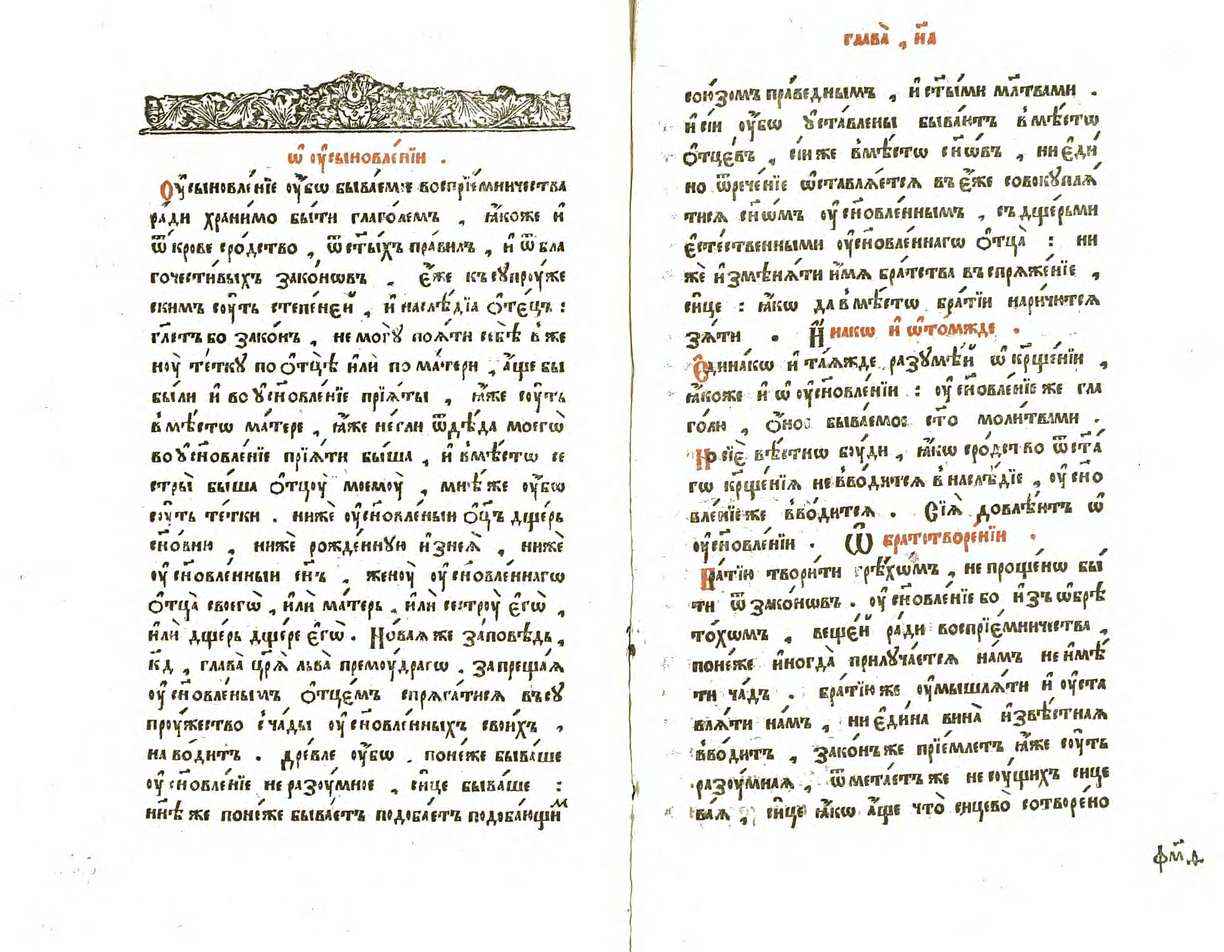 ѡ҆ ᲂу҆сыновле́нїи .
Оу҆сыновле́нїе ᲂу҆́бѡ быва́емое воспрїе́мничества
ра́ди храни́мо бы́ти глаго́лемъ , ꙗ҆́коже и҆
ѿ кро́ве сро́дство , ѿ ст҃ы́хъ пра́вилъ , и҆ ѿ бла
гочести́выхъ зако́нѡвъ . є҆́же къ сꙋпрꙋ́же
скимъ сꙋ́ть степе́ней , и҆ наслѣ́дїѧ ѻ҆те́цъ :
гл҃етъ бо зако́нъ , не могꙋ̀ поѧ́ти себѣ̀ в же
нꙋ̀ те́ткꙋ по ѻ҆тцѣ̀ и҆лѝ по ма́тери , а҆́ще бы
бы́ли и҆ во ᲂу҆сн҃овле́нїе прїѧ́ты , ꙗ҆̀же сꙋ́ть
в мѣ́стѡ ма́тере , ꙗ҆́же не гли ѿ дѣ́да моегѡ̀
во ᲂу҆сн҃овле́нїе прїѧ́ти бы́ша , и҆ в мѣ́стѡ се
стры̀ бы́ша ѻ҆тцꙋ̀ моемꙋ̀ , мнѣ́ же ᲂу҆́бѡ
сꙋ́ть те́тки . ниже́ ᲂу҆сн҃овле́ныи ѻ҆ц҃ъ дще́рь
сн҃овню , ниже́ рожде́ннꙋю и҆з неѧ̀ , ниже́
ᲂу҆сн҃овле́нныи сн҃ъ , женꙋ̀ ᲂу҆сн҃овле́ннагѡ
ѻ҆тца̀ своегѡ̀ , и҆лѝ ма́терь , и҆лѝ сестрꙋ̀ є҆гѡ̀ ,
и҆лѝ дще́рь дще́ре є҆гѡ̀ . Но́ваѧ же за́повѣдь ,
к҃д , глава̀ цр҃ѧ̀ льва̀ премꙋ́драгѡ , запреща́ѧ
ᲂу҆сн҃овле́нымъ ѻ҆тце́мъ спрѧга́тисѧ въ сꙋ
прꙋ́жество с ча́ды ᲂу҆сн҃овле́нныхъ свои́хъ ,
наво́дитъ . дре́вле ᲂу҆́бѡ . поне́же быва́ше
ᲂу҆сн҃овле́нїе неразꙋ́мное , си́це быва́ше :
нн҃ѣ же поне́же быва́етъ подоба́етъ подоба́ющимъ
глава̀ , н҃а
сою́зомъ пра́веднымъ , и҆ ст҃ы́ми мл҃твами .
и҆ сїѝ ᲂу҆́бѡ ᲂу҆ста́влены быва́ютъ в мѣ́стѡ
ѻ҆тце́въ , сїи́ же в мѣ́стѡ сн҃ѡ́въ , ни є҆ди́
но ѿрече́нїе ѡ҆ставлѧ́етсѧ въ є҆́же совокꙋплѧ́
тисѧ сн҃ѡ́мъ ᲂу҆сн҃овле́ннымъ , съ дще́рьми
є҆сте́ственными ᲂу҆сн҃овле́ннагѡ ѻ҆тца̀ : ни
жѐ и҆змѣнѧ́ти и҆́мѧ бра́тства въ спрѧже́нїе ,
си́це : ꙗ҆́кѡ да в мѣ́стѡ бра́тїи нарича́тсѧ
зѧ́ти . И҆́накѡ и҆ ѡ҆ то́мжде .
Ѻ҆дина́кѡ и҆ та́ѧжде разꙋмѣ́й ѡ҆ кр҃ще́нїи ,
ꙗ҆́коже и҆ ѡ҆ ᲂу҆сн҃овле́нїи : ᲂу҆сн҃овле́нїе же гла
го́лю , ѻ҆́ное быва́емое ст҃о моли́твами .
И҆ сїѐ вѣ́стнѡ бꙋ́ди , ꙗ҆́кѡ сро́дство ѿ ст҃а́
гѡ кр҃ще́нїѧ не вво́дитсѧ в наслѣ́дїе , ᲂу҆сн҃о
вле́нїе же вво́дитсѧ . Сїѧ̀ довлѣ́ютъ ѡ҆
ᲂу҆сн҃овле́нїи . Ѡ҆ братотворе́нїи .
Бра́тїю твори́ти грѣ́хѡмъ , не проще́нѡ бы́
ти ѿ зако́нѡвъ . ᲂу҆сн҃овле́нїе бо и҆зѡбрѣ
то́хѡмъ , веще́й ра́ди воспрїе́мничества ,
поне́же и҆ногда̀ прилꙋча́етсѧ на́мъ не и҆мѣ́
ти ча́дъ . бра́тїю же ᲂу҆мышлѧ́ти и҆ ᲂу҆ста
влѧ́ти на́мъ , ни є҆ди́на вина̀ и҆звѣ́стнаѧ
вво́дитъ , зако́нъ же прїе́млетъ ꙗ҆́же сꙋ́ть
разꙋ́мнаѧ , ѿмета́етъ же не сꙋ́щихъ сице
ва́ѧ , си́це ꙗ҆́кѡ а҆́ще что̀ сицево̀ сотворе́но
фм҃д